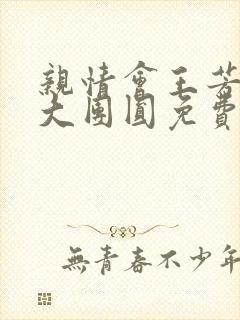 親情會王芳
大團圓免費
無青春不少年